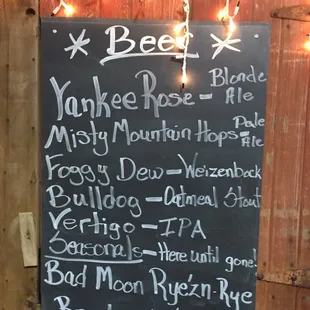 * Beer *
Yankee Rose - Blonde Ale
Misty Mountain Hops - Pale Ale
Foggy Dew - Weizenbock
Bulldog - Oatmeal Stout
Vertigo - IPA
Seasonals - Here until gone!
Bad Moon Rye'zn - Rye